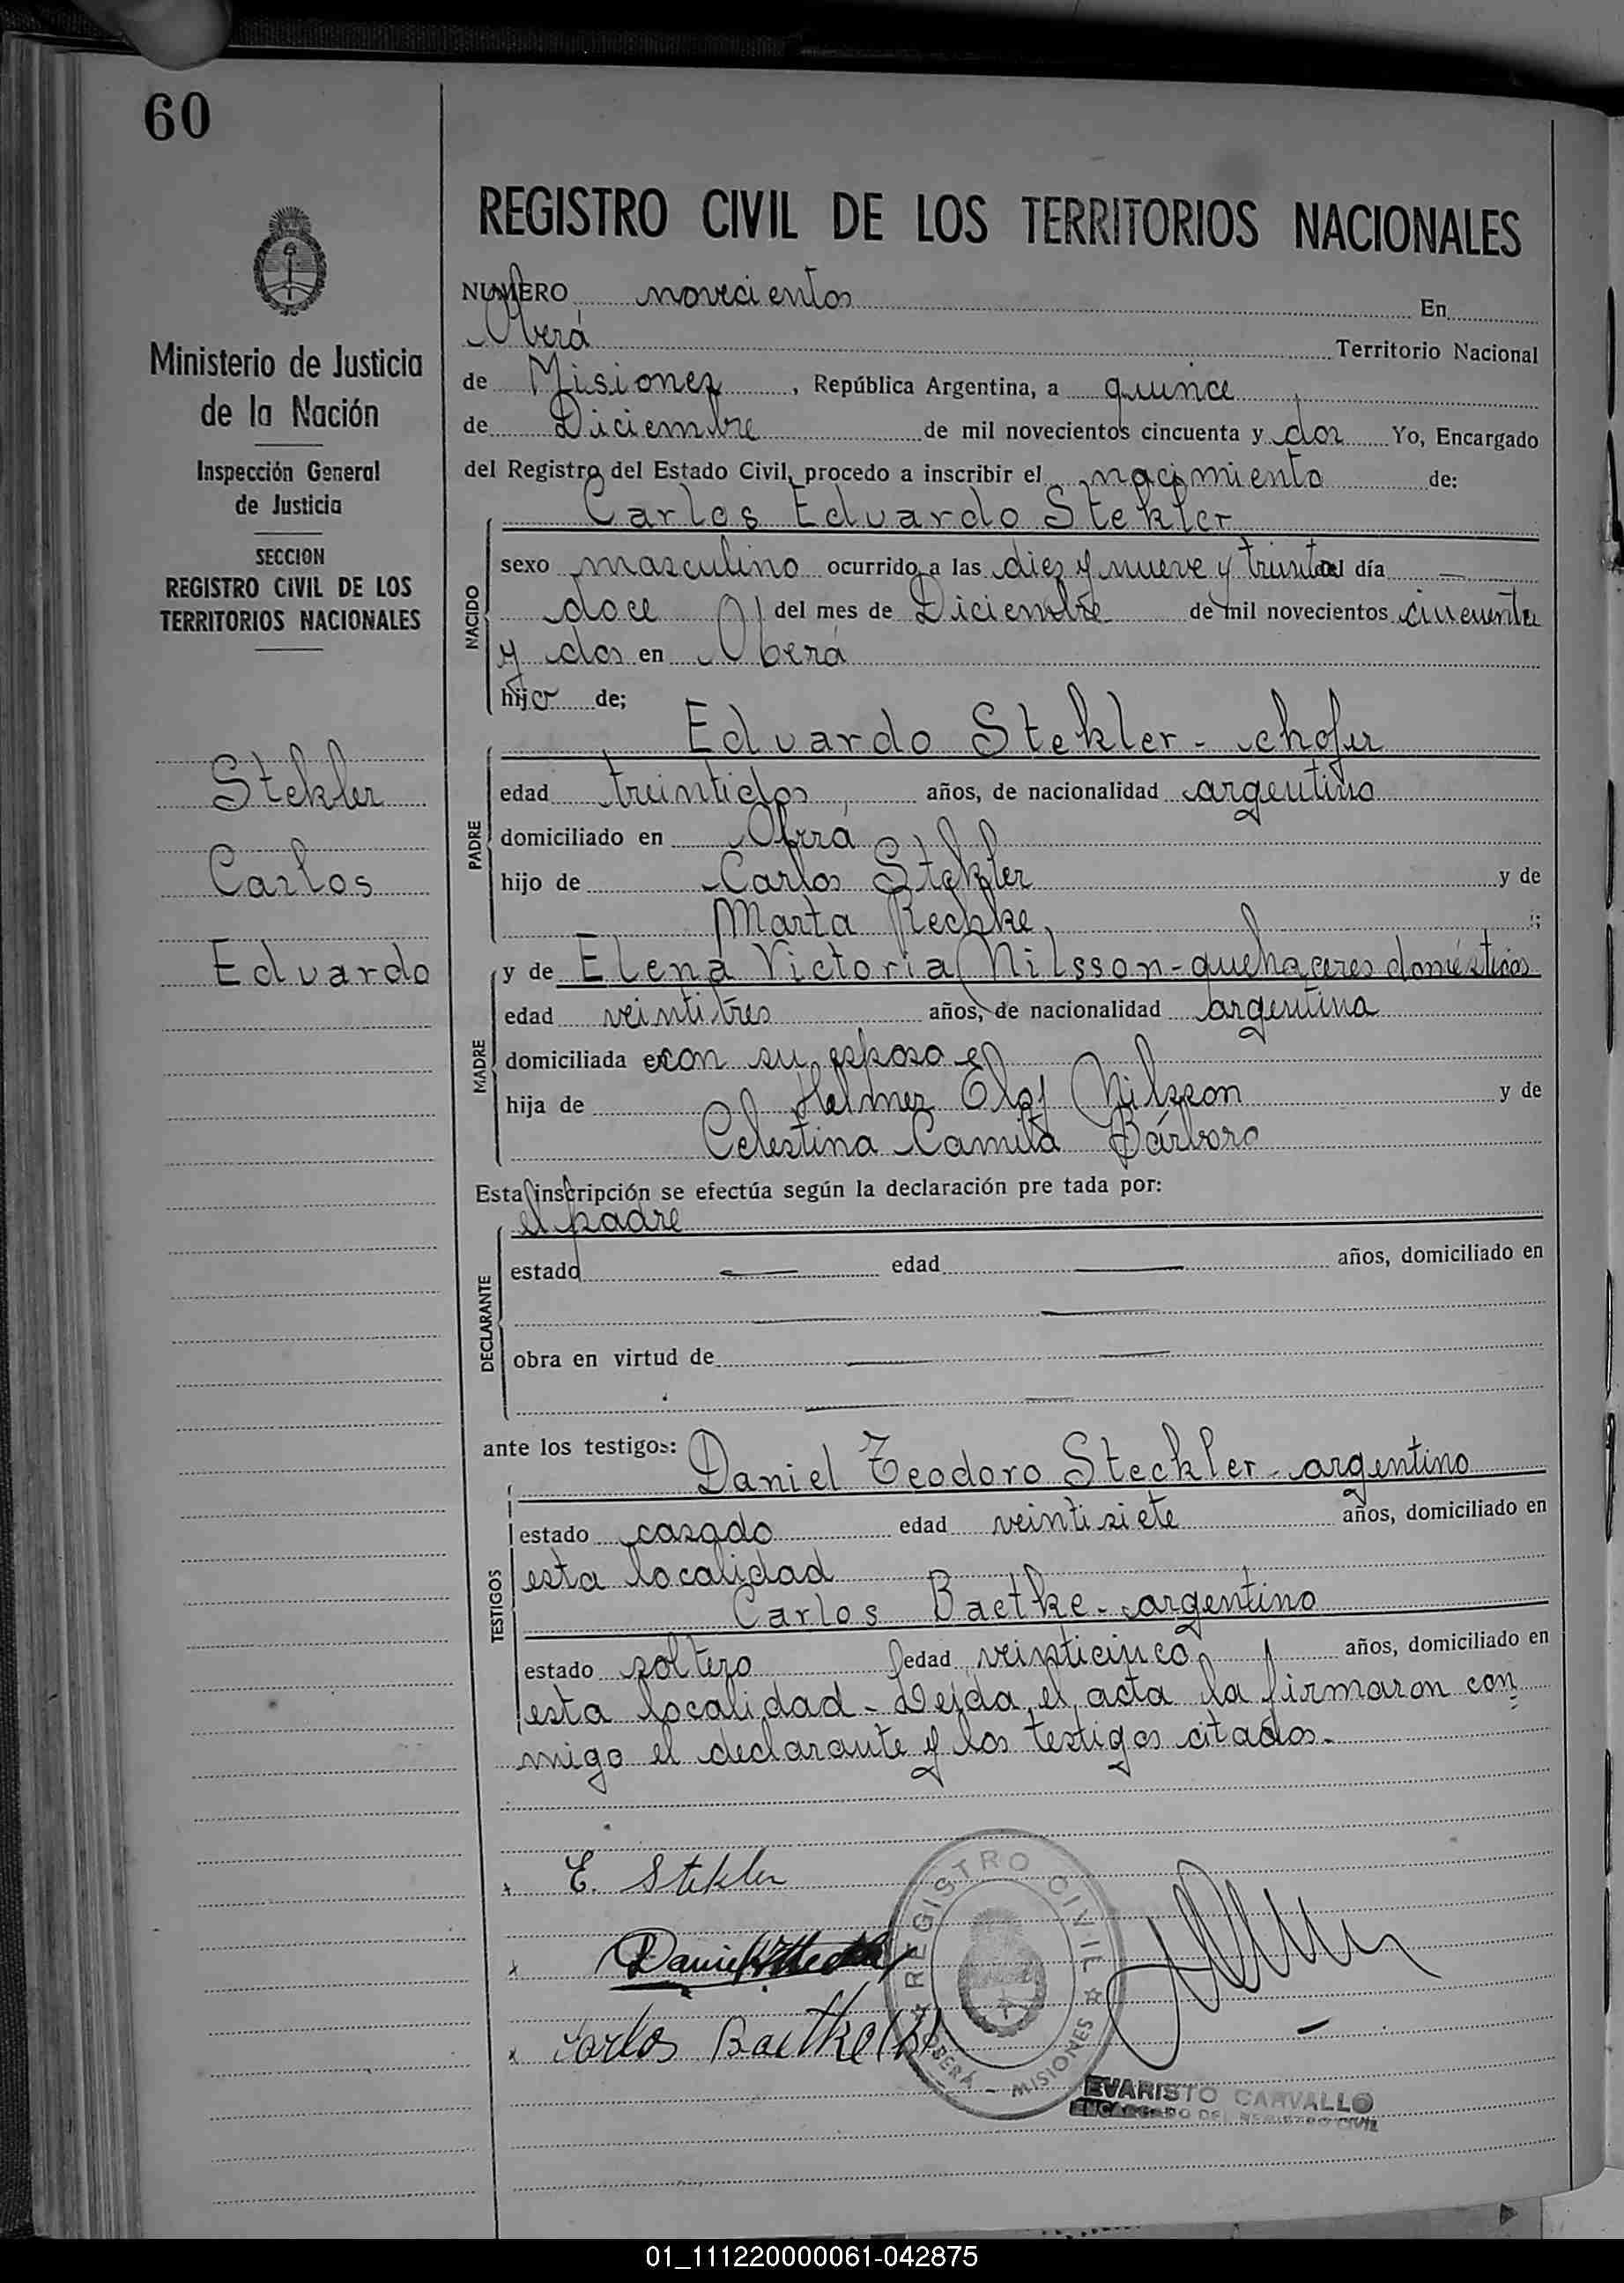 60
REGISTRO CIVIL DE LOS TERRITORIOS NACIONALES
Ministerio de Justicia
de la Nación
Inspección General
de Justicia
SECCION
REGISTRO CIVIL DE LOS
TERRITORIOS NACIONALES
Stekler
Carlos
Eduardo
NUMERO novecientos En
Oberá Territorio Nacional
de Misiones, República Argentina, a quince
de Diciembre de mil novecientos cincuenta y dos Yo, Encargado
del Registro del Estado Civil, procedo a inscribir el nacimiento de:
Carlos Eduardo Stekler
NACIDO
sexo masculino ocurrido a las diez y nueve y treinta del día —
doce del mes de Diciembre de mil novecientos cincuenta
y dos en Oberá
hijo de;
Eduardo Stekler - chofer
PADRE
edad treintidos años, de nacionalidad argentino
domiciliado en Oberá
hijo de Carlos Stekler y de
Marta Rechke ;
y de Elena Victoria Nilsson - quehaceres domésticos
MADRE
edad veintitres años, de nacionalidad argentina
domiciliada en con su esposo
hija de Helmer Elof Nilsson y de
Celestina Camila Bárbaro
Esta inscripción se efectúa según la declaración pre tada por:
el padre
DECLARANTE
estado — edad — años, domiciliado en
obra en virtud de
ante los testigos: Daniel Teodoro Steckler - argentino
TESTIGOS
estado casado edad veintisiete años, domiciliado en
esta localidad
Carlos Baetke - argentino
estado soltero edad veinticinco años, domiciliado en
esta localidad - Leída el acta la firmaron con
migo el declarante y los testigos citados.-
E. Stekler
Daniel
Carlos Baetke (h)
REGISTRO CIVIL
OBERÁ - MISIONES
EVARISTO CARVALLO
ENCARGADO DEL REGISTRO CIVIL
01_111220000061-042875